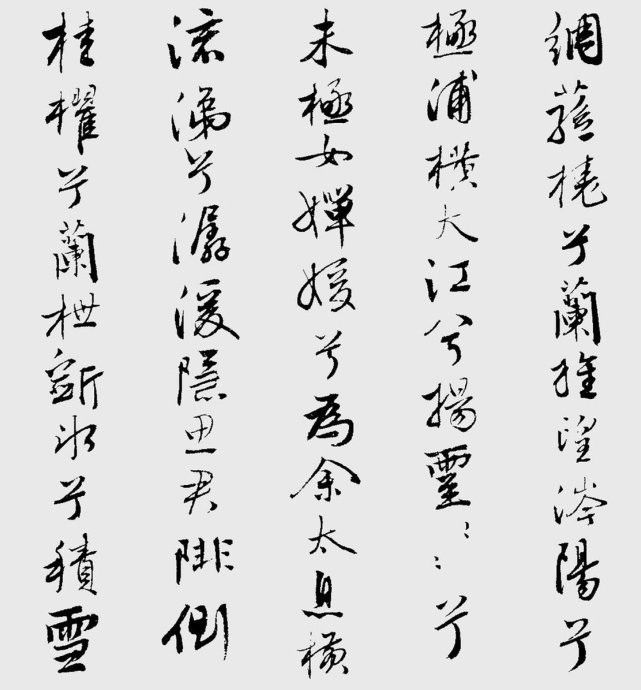 綢蓀橈兮蘭旌望涔陽兮
極浦橫大江兮揚靈〻〻兮
未極女嬋媛兮為余太息橫
流涕兮潺湲隱思君陫側
桂櫂兮蘭枻斲冰兮積雪